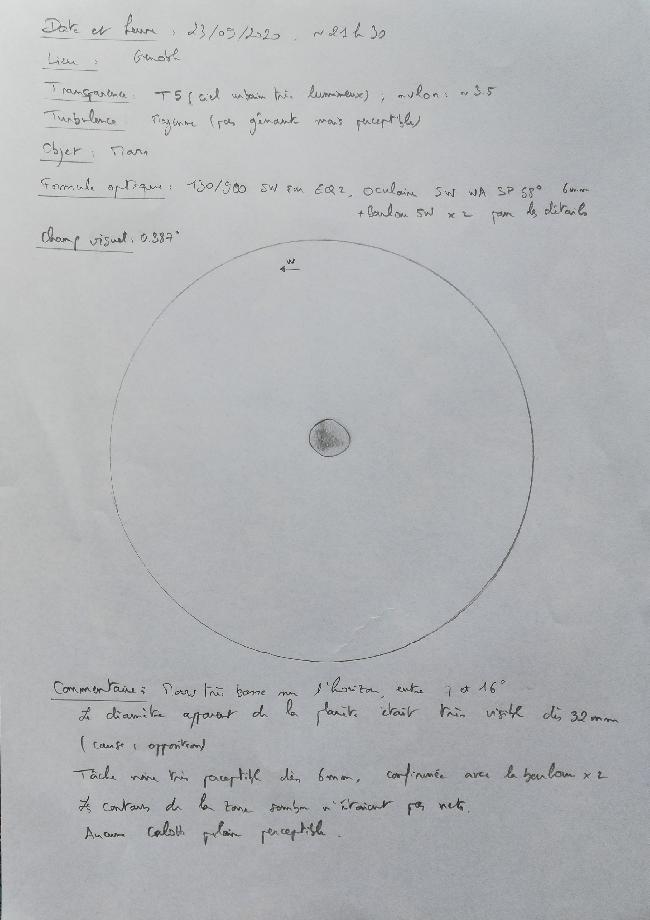 Date et heure : 23/09/2020. ~21h30
Lieu :
Transparence : T5 (ciel urbain très lumineux) ; mvlon : ~3.5
Turbulence : Moyenne (pas gênante mais perceptible)
Objet : Mars
Formule optique : 130/900 SW sur EQ2, oculaire SW WA SP 58° 6mm
+ barlow SW x2 pour les détails
Champ visuel : 0.387°
W
Commentaire : Mars très basse sur l'horizon, entre 7 et 16°
Le diamètre apparent de la planète était très visible dès 32mm
(cause : opposition)
Tâche noire très perceptible dès 6mm, confirmée avec la barlow x2
Les contours de la zone sombre n'étaient pas nets.
Aucune calotte polaire perceptible.